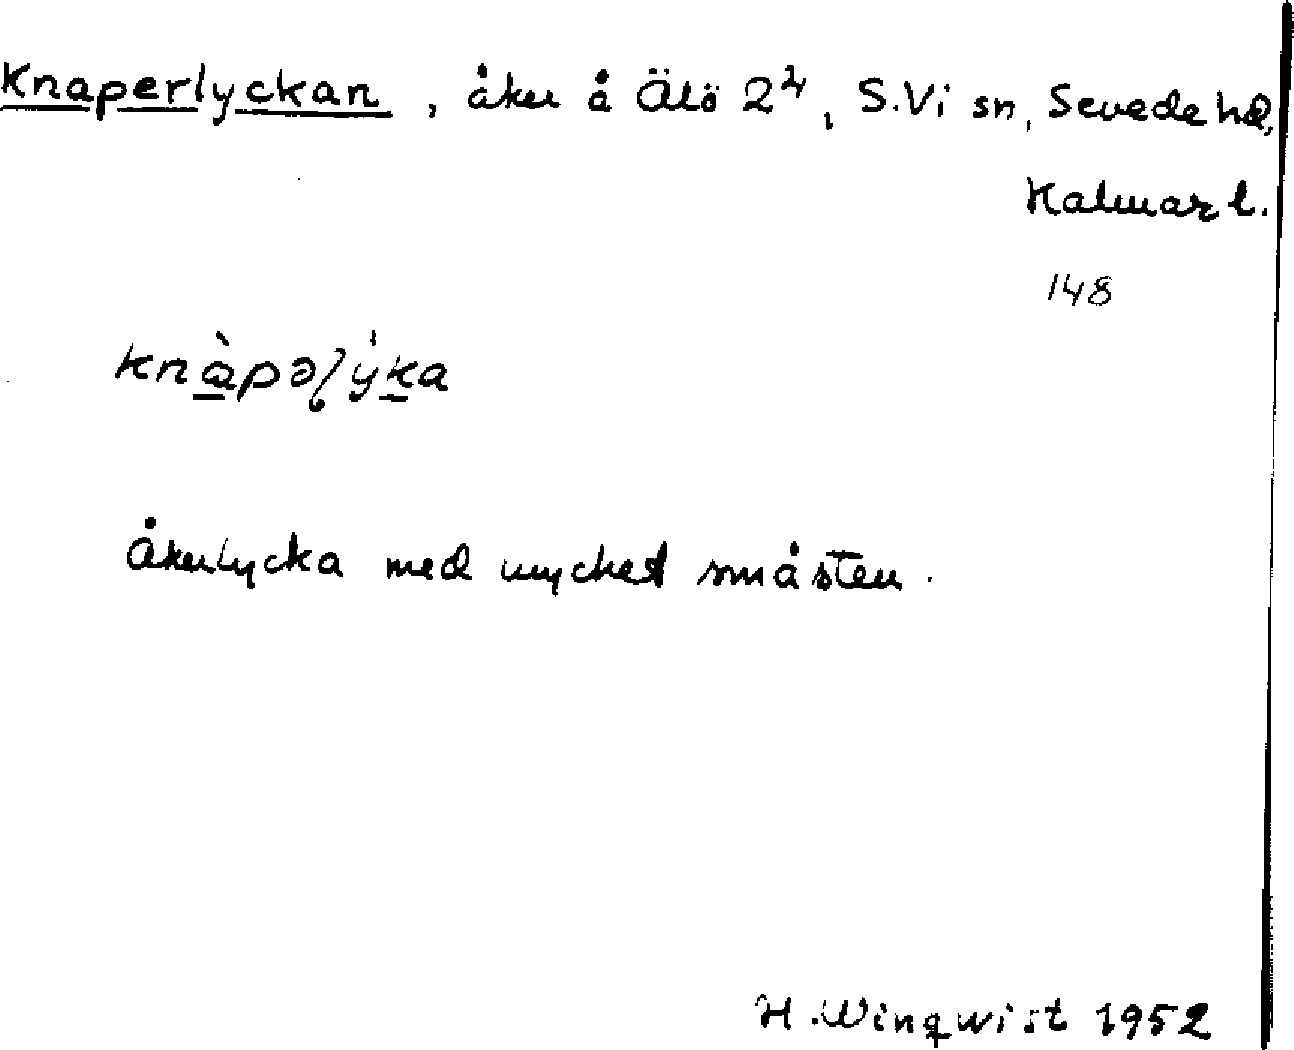 Knaperlyckan, åker å Älö 2⁴, S.Vi sn, Sevede hd,
Kalmar l.
148
knàpəɭýka
Åkerlycka med mycket småsten.
H. Winqwist 1952